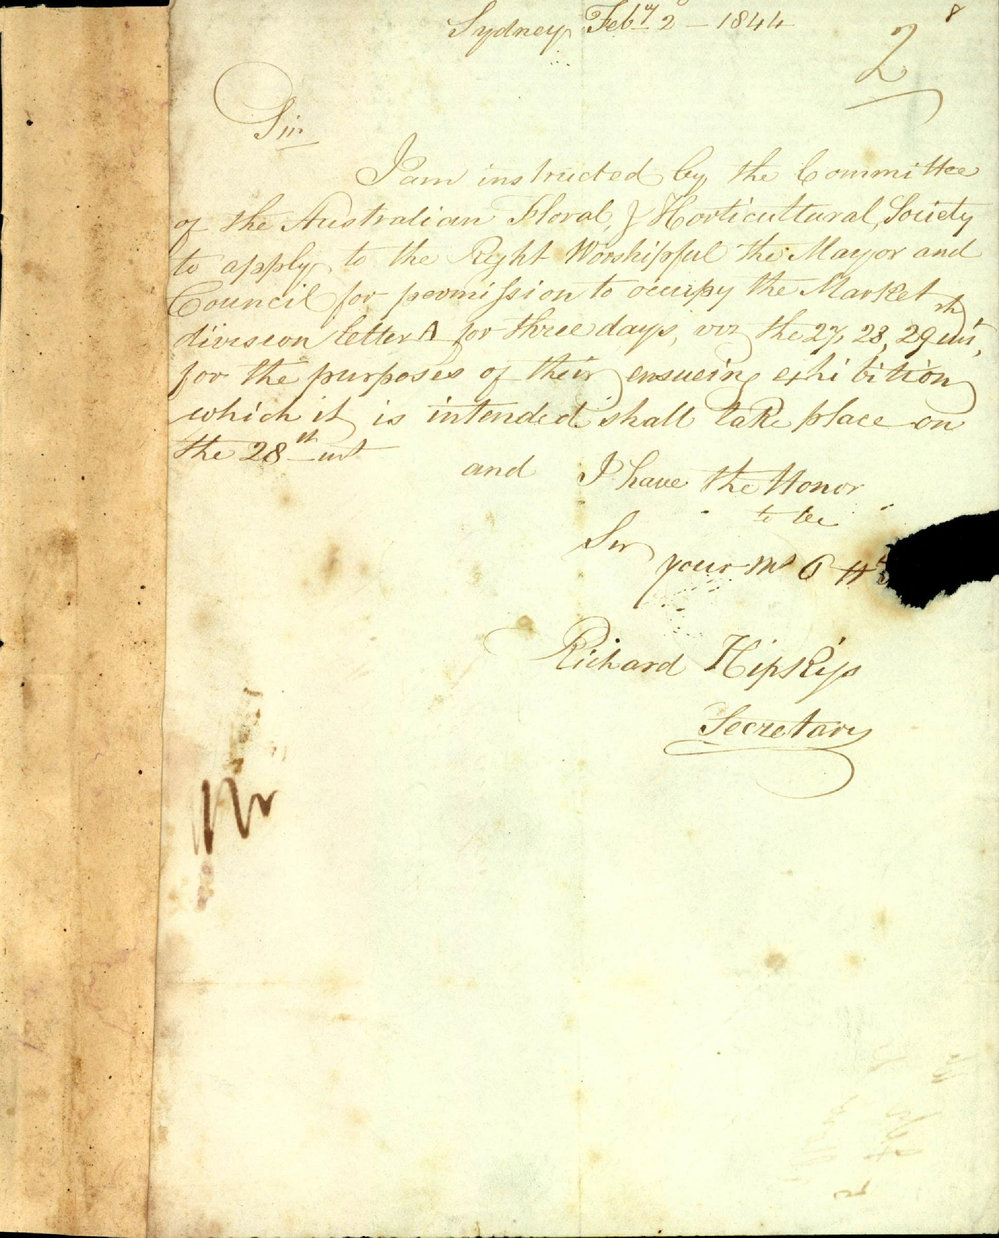 8
Sydney Feby 2 - 1844
2
Sir
I am instructed by the Committee
of the Australian Floral, & Horticultural, Society
to apply to the Right Worshipful the Mayor and
Council for permission to occupy the Market
division letter A for three days, viz the 27, 28, 29th inst,
for the purposes of their ensueing exhibition
which it is intended shall take place on
the 28th inst
and I have the Honor
to be
Sir
your Mt O H
Richard Hipkiys
Secretary